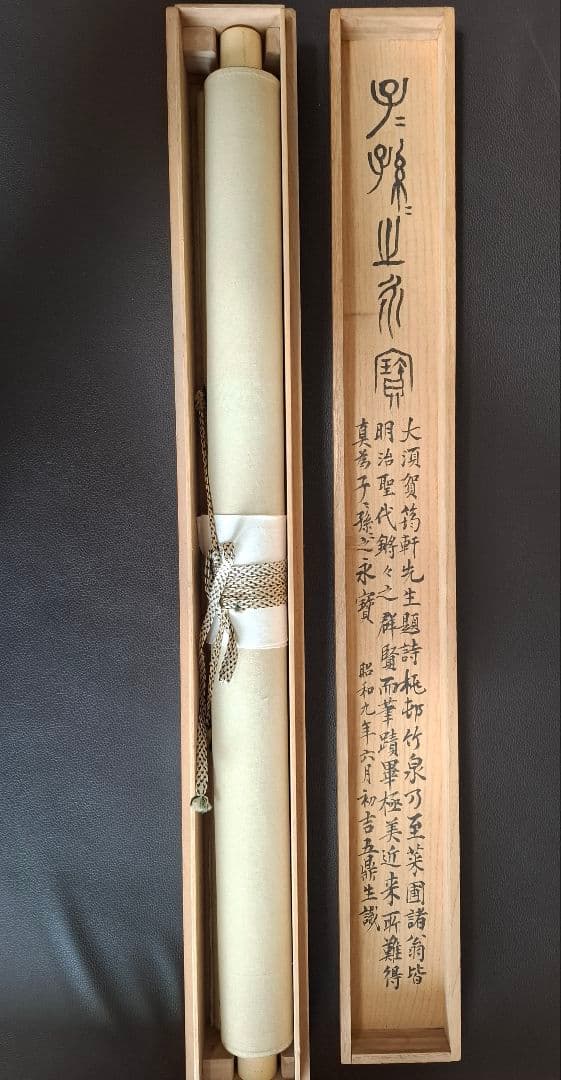 子〻孫〻之永寶
大須賀筠軒先生題詩桃邨竹泉乃至菜圃諸翁皆
明治聖代鏘々之群賢而筆蹟畢極美近来所難得
真為子〻孫之永寶　昭和九年六月初吉五鼎生識